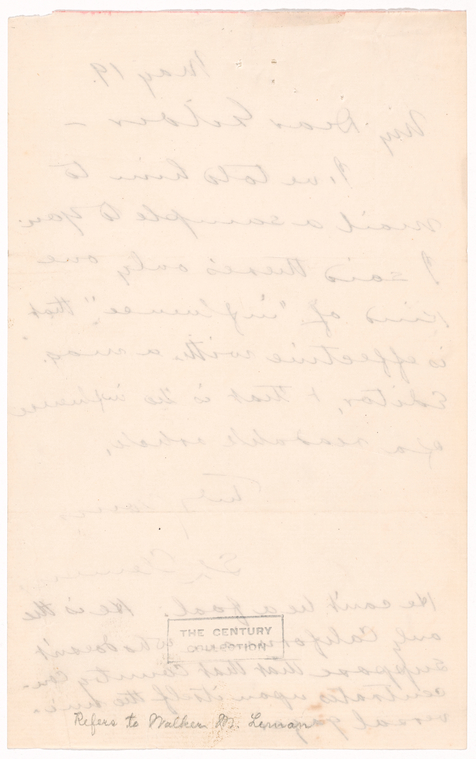 May 19.
My Dear Gilder —
I've told him to
mail a sample to you
I said there's only one
kind of "influence" that
is effective with a mag.
Editor, & that is the influence
of a readable article.
Truly Yours
S L Clemens
He can't be a fool. He is the
only Californian who doesn't
suppose that that County con-
centrates upon itself the uni-
versal gaze
THE CENTURY
COLLECTION
Refers to Walker M. Leman